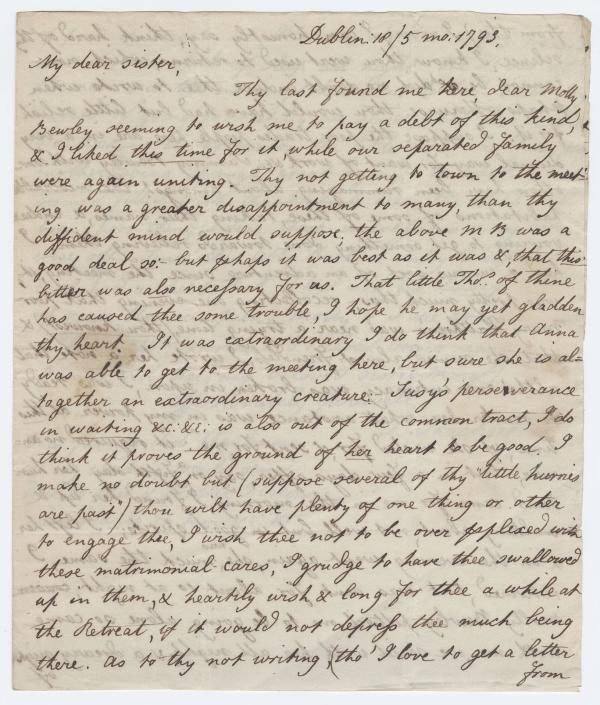 Dublin 18/5 mo: 1793.
My dear sister,
Thy last found me here, dear Molly
Bewley seeming to wish me to pay a debt of this kind,
& I liked this time for it, while our separated family
were again uniting. Thy not getting to town to the meet-
ing was a greater disappointment to many, than thy
diffident mind would suppose, the above M B was a
good deal so:- but phaps it was best as it was &, that this
bitter was also necessary for us. That little Thos. of thine
has caused thee some trouble, I hope he may yet gladden
thy heart. It was extraordinary I do think that Anna
was able to get to the meeting here, but sure she is al=
together an extraordinary creature. Susy's perseverance
in waiting &c: &c: is also out of the common tract, I do
think it proves the ground of her heart to be good. I
make no doubt but (suppose several of thy "little hurries
are past") thou wilt have plenty of one thing or other
to engage thee, I wish thee not to be over pplexed with
these matrimonial cares, I grudge to have thee swallowed
up in them, & heartily wish & long for thee a while at
the Retreat, if it would not depress thee much being
there. As to thy not writing, (tho' I love to get a letter
from